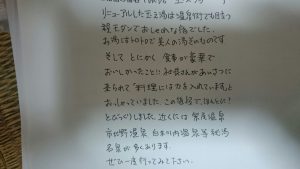 リニューアルした
温泉街でも目立つ
モダンでおしゃれな宿でした。
お湯はトロトロで美人の湯そのものです
そして とにかく 食事が豪華で
おいしかったことに社長さんがあいさつに
来られて「料理には力を入れています」と
おっしゃっていました。この値段で、ほんとに!
とびっくりしました。近くには
温泉 白木川内温泉等秘湯
名泉が多くあります。
ぜひ一度行ってみて下さい。